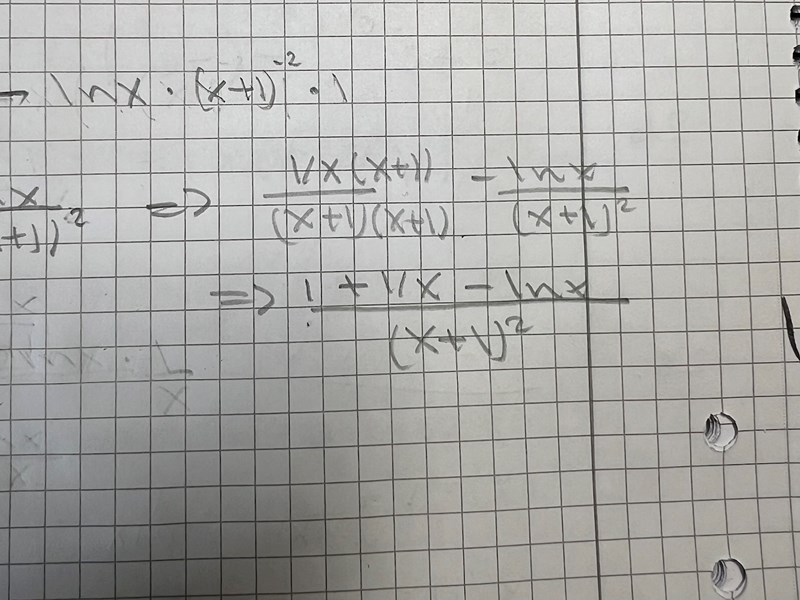 → lnx · (x+1)^-2 · 1
x/+1)^2 => 1/x(x+1)/(x+1)(x+1) - lnx/(x+1)^2
=> 1 + 1/x - lnx/(x+1)^2